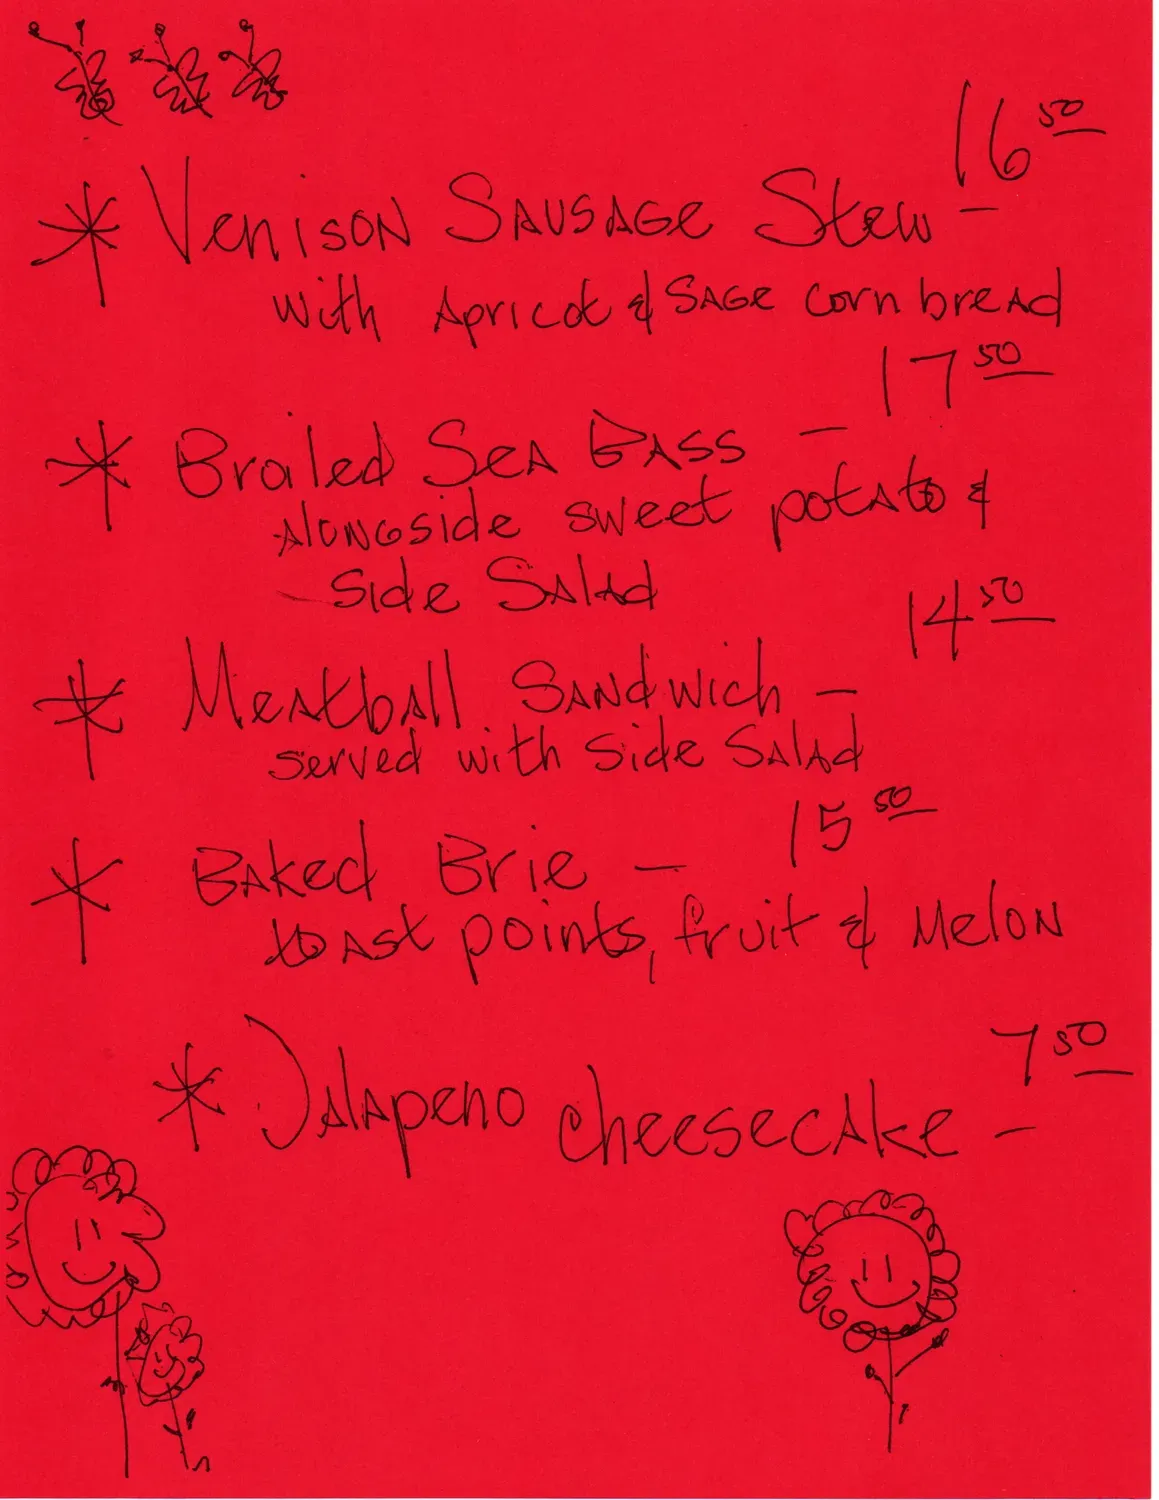 16 50
* Venison Sausage Stew -
with Apricot & Sage corn bread
17 50
* Broiled Sea Bass -
alongside sweet potato &
side Salad
14 50
* Meatball Sandwich -
served with side Salad
15 50
* Baked Brie -
toast points, fruit & Melon
7 50
* Jalapeno cheesecake -